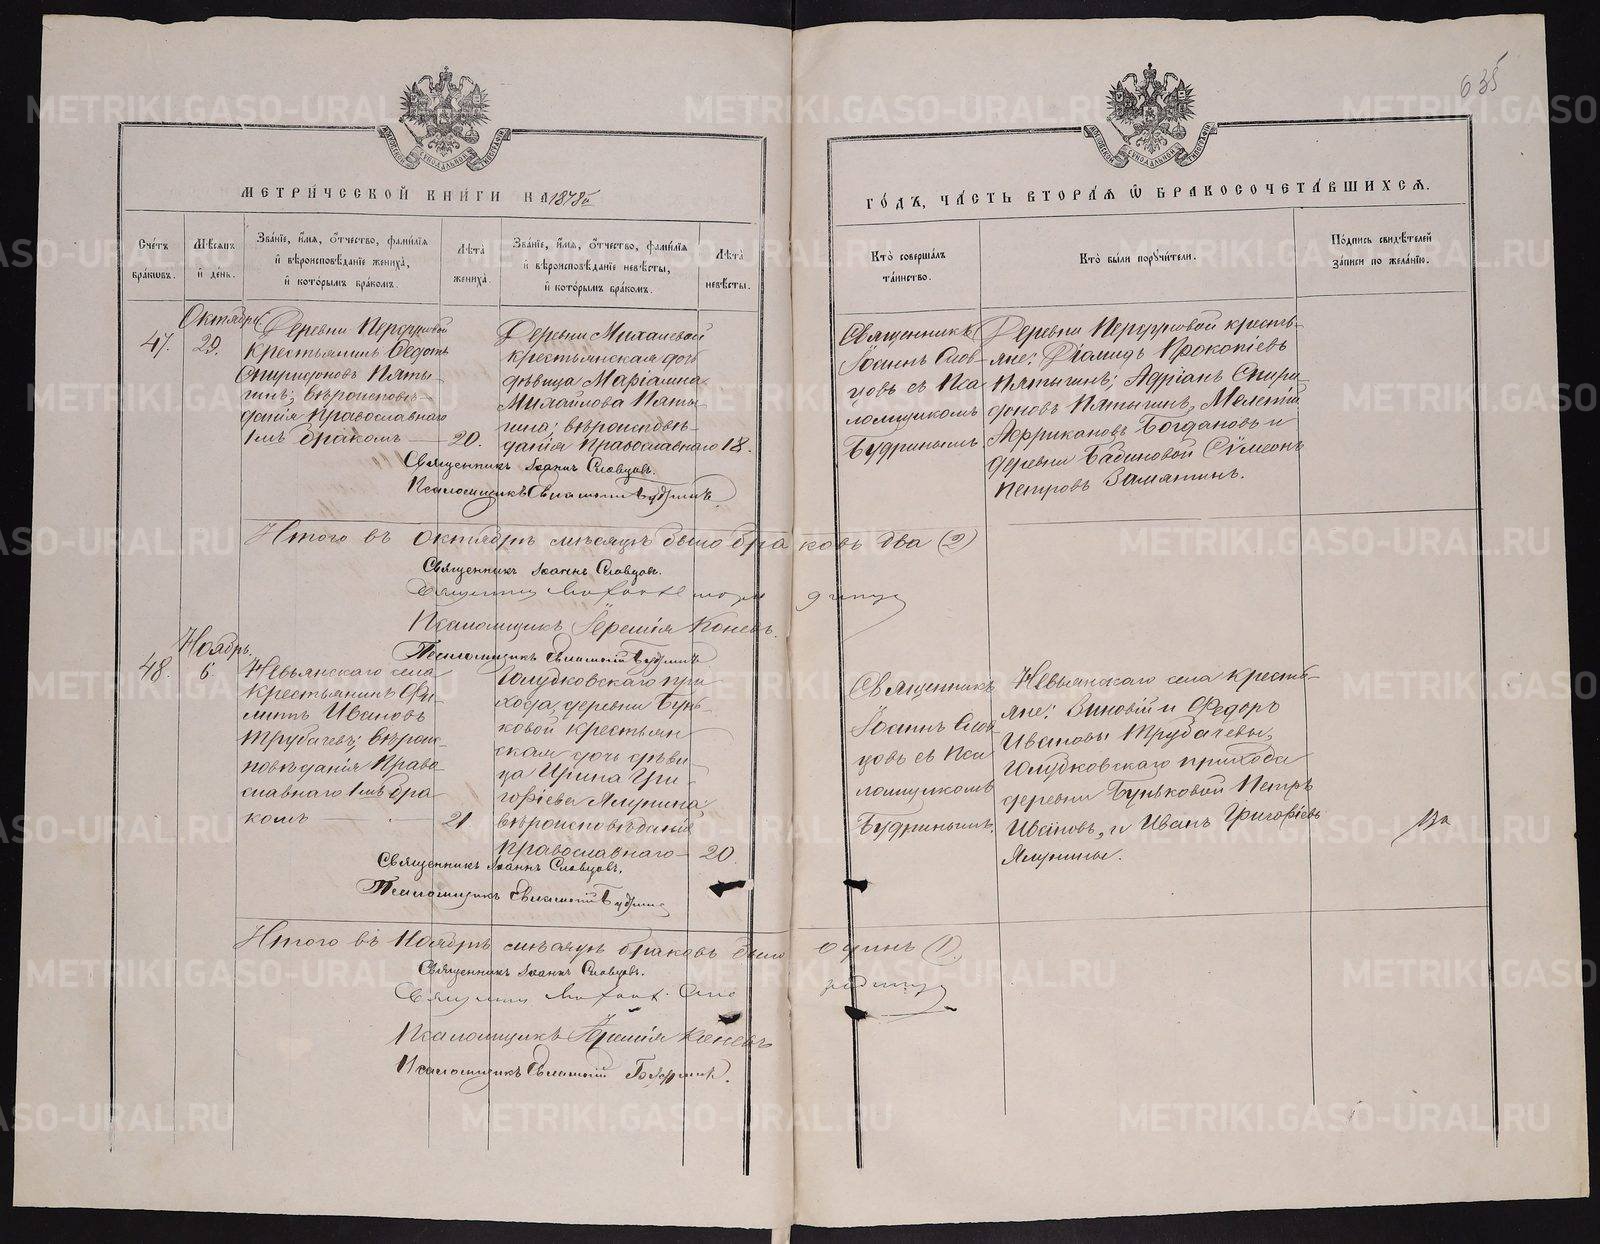 635
МЕТРИЧЕССКОЙ КНИГИ НА 1878й
ГОДЪ, ЧАСТЬ ВТОРАЯ Ѡ БРАКОСОЧЕТАВШИХСЯ.
Счетъ браковъ.
Мѣсяцъ и день.
Званіе, имя, отчество, фамилія и вѣроисповѣданіе жениха, и которымъ бракомъ.
Лѣта жениха.
Званіе, имя, отчество, фамилія и вѣроисповѣданіе невѣсты, и которымъ бракомъ.
Лѣта невѣсты.
Кто совершалъ таинство.
Кто были поручители.
Подпись свидѣтелей записи по желанію.
47.
Октября
29.
Деревни Першуковой
Крестьянинъ Ѳедотъ
Спиридоновъ Пяты-
гинъ; вѣроисповѣ-
данія Православнаго
1мъ бракомъ
20.
Деревни Михалевой
крестьянская дочь
дѣвица Маріамна
Михайлова Пяты-
гина; вѣроисповѣ-
данія Православнаго
18.
Священникъ
Іоаннъ Слов-
цовъ съ Пса
ломщикомъ
Будринымъ
крестья-
яне: Діомидъ Прокопіевъ
Пятыгинъ; Адріанъ Спири-
доновъ Пятыгинъ, Мелетій
Африкановъ Богдановъ и
деревни Бабиновой Сѵмеонъ
Петровъ Замятинъ.
Священникъ Іоаннъ Словцовъ.
Псаломщикъ Евлампій Будринъ
Итого въ Октябрѣ мѣсяцѣ было браковъ два (2)
Священникъ Іоаннъ Словцовъ.
Псаломщикъ Іеремія Коневъ.
Псаломщикъ Евлампій Будринъ
48.
Ноябрь
6.
Невьянскаго села
Крестьянинъ Фи-
липпъ Ивановъ
Трубачевъ; вѣроис-
повѣданія Право
славнаго 1мъ бра
комъ
21
Голубковскаго при
хода, деревни Бунь-
ковой Крестьян
ская дочь дѣви-
ца Ирина Гри-
горіева Ялунина
вѣроисповѣданія
Православнаго
20.
Священникъ
Іоаннъ Слов
цовъ съ Пса
ломщикомъ
Будринымъ.
Невьянскаго села кресть-
яне: Зиновій и Федоръ
Ивановы Трубачевы,
Голубковскаго прихода
деревни Буньковой Петръ
Ивановъ, и Иванъ Григоріевъ
Ялунины.
Священникъ Іоаннъ Словцовъ.
Псаломщикъ Евлампій Будринъ
Итого въ Ноябрѣ мѣсяцѣ браковъ было одинъ (1).
Священникъ Іоаннъ Словцовъ.
Псаломщикъ Іеремія Коневъ
Псаломщикъ Евлампій Будринъ.
METRIKI.GASO-URAL.RU